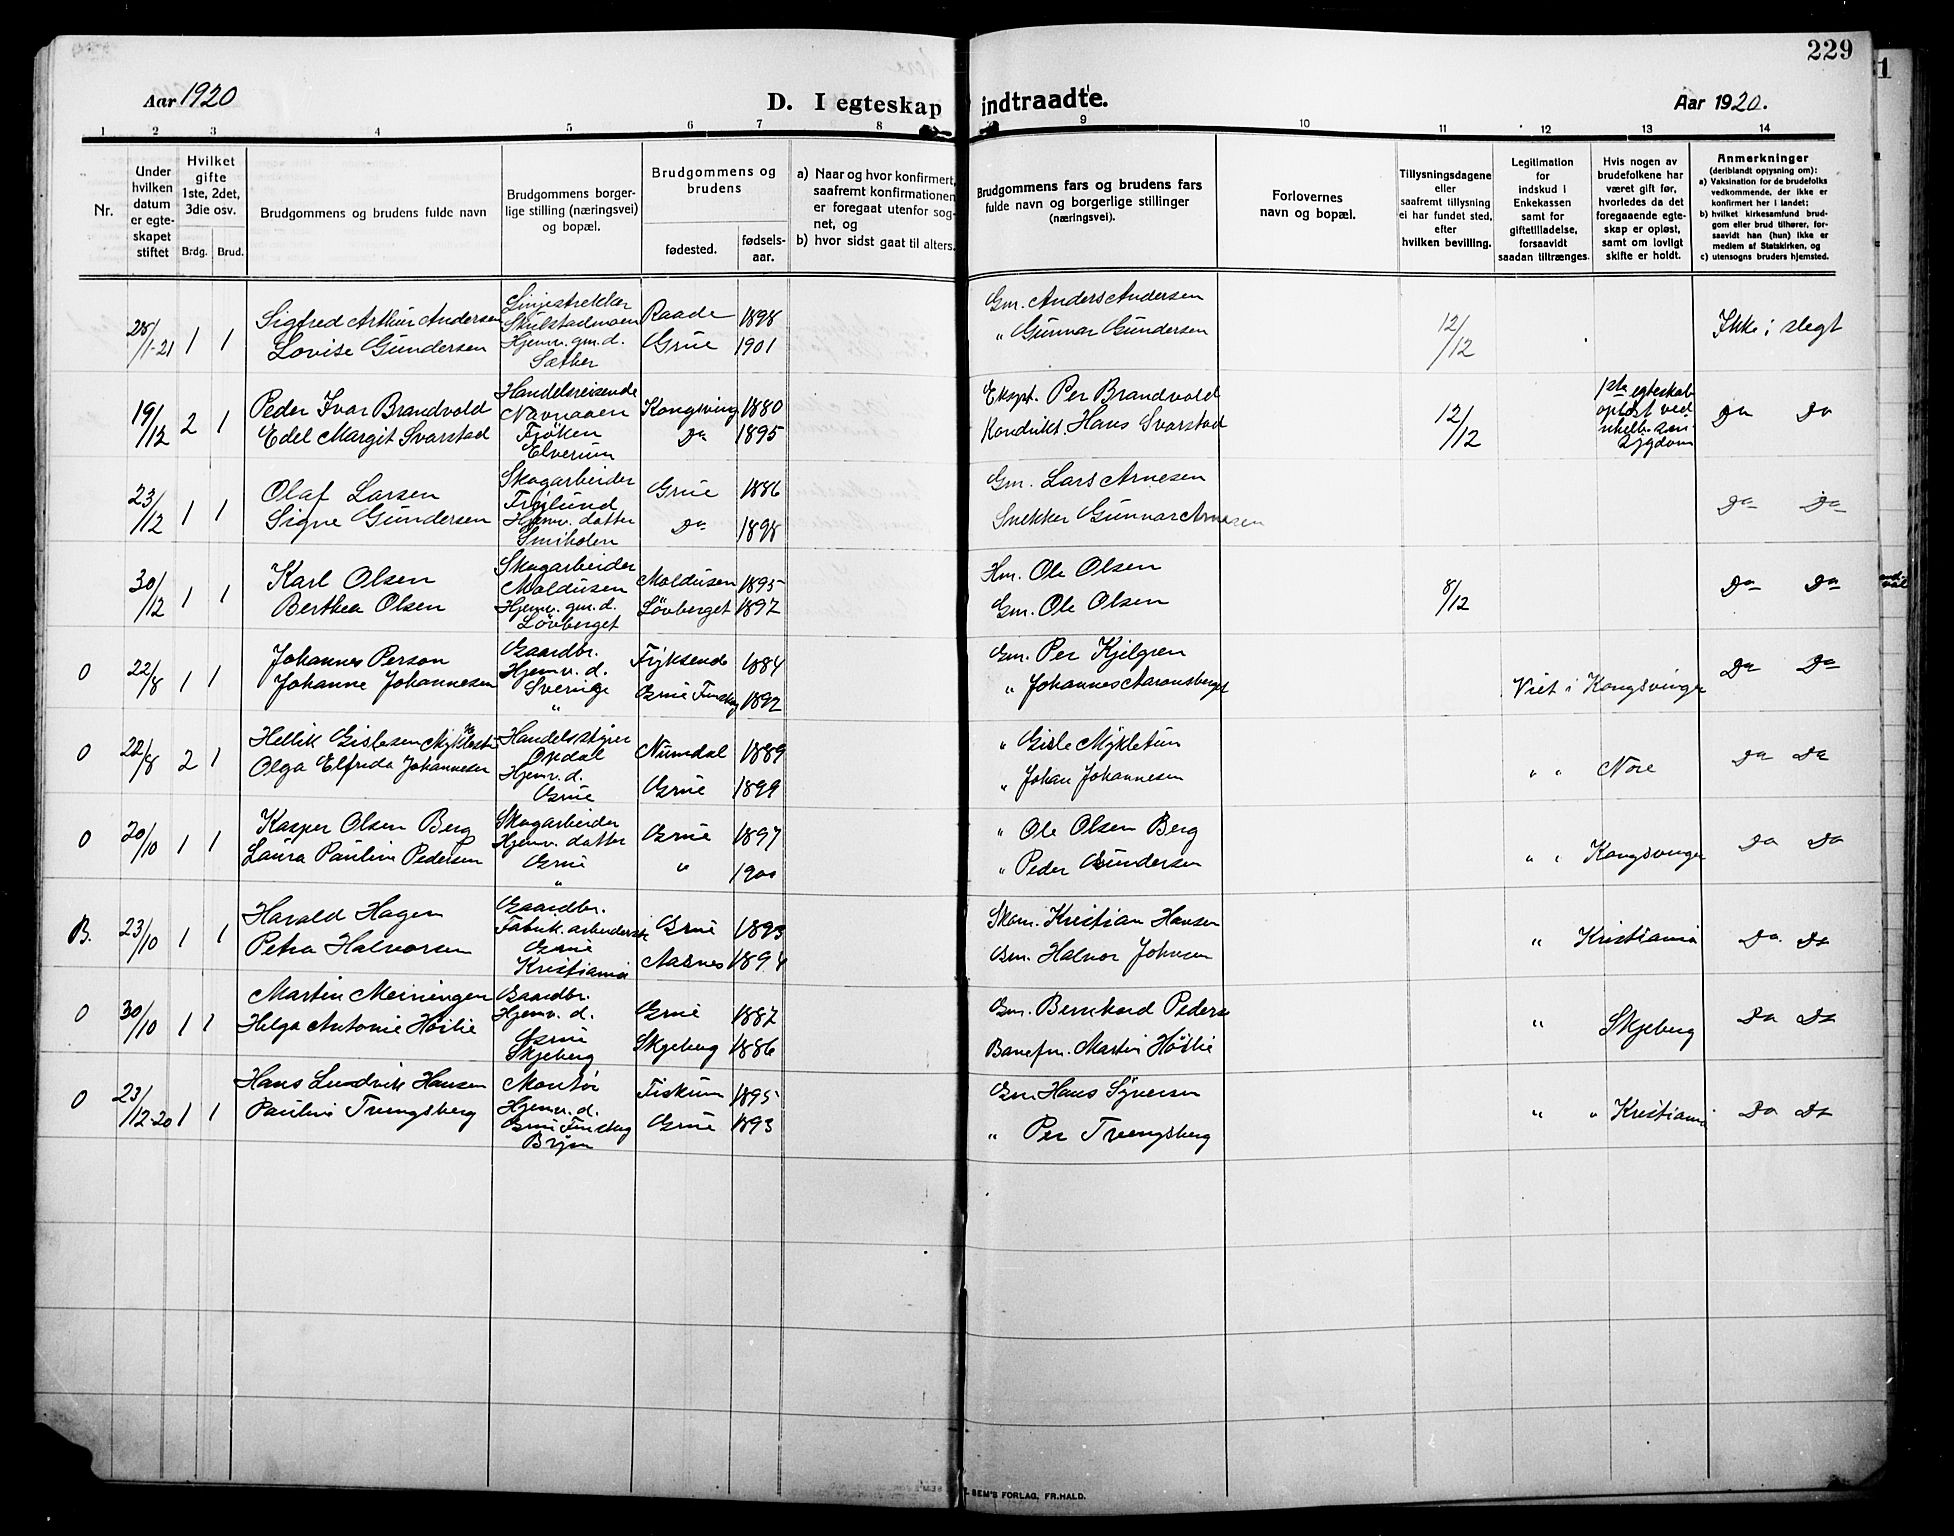 229
Aar 1920
D. I egteskap indtraadte.
Aar 1920.
1 2 3 4 5 6 7 8 9 10 11 12 13 14
Nr.
Under hvilken datum er egteskapet stiftet
Hvilket gifte 1ste, 2det, 3die osv.
Brdg. Brud.
Brudgommens og brudens fulde navn
Brudgommens borgerlige stilling (næringsvei) og bopæl.
Brudgommens og brudens
fødested.
fødselsaar.
a) Naar og hvor konfirmert, saafremt konfirmationen er foregaat utenfor sognet, og
b) hvor sidst gaat til alters.
Brudgommens fars og brudens fars fulde navn og borgerlige stillinger (næringsvei).
Forlovernes navn og bopæl.
Tillysningsdagene eller saafremt tillysning ei har fundet sted, efter hvilken bevilling.
Legitimation for indskud i Enkekassen samt for giftetilladelse, forsaavidt saadan tiltrænges.
Hvis nogen av brudefolkene har været gift før, hvorledes da det foregaaende egteskap er opløst, samt om lovligt skifte er holdt.
Anmerkninger (deriblandt oplysning om):
a) Vaksination for de brudefolks vedkommende, der ikke er konfirmert her i landet;
b) hvilket kirkesamfund brudgom eller brud tilhører, forsaavidt han (hun) ikke er medlem af Statskirken, og
c) utensogns bruders hjemsted.
28/1-21 1 1 Sigfred Arthur Andersen Linjestrekker Raade 1898 Gm. Anders Andersen 12/12 Ikke i slegt
Lovise Gundersen Hjemv. gm. d. Sæther Grue 1901 " Gunnar Gundersen
19/12 2 1 Peder Ivar Brandvold Handelsreisende Kongsving 1880 Ekspt. Per Brandvold 12/12 1ste egteskab opløst ved Do Do
Edel Margit Svarstad Elverum Do 1895 Kondukt. Hans Svarstad
23/12 1 1 Olaf Larsen Skogarbeider Grue 1886 Gm. Lars Arnesen Do Do
Signe Gundersen Hjemv. datter Smiholen Do 1898 Snekker Gunnar Arnesen
30/12 1 1 Karl Olsen Skogarbeider Moldusen Moldusen 1895 Hm. Ole Olsen 8/12 Do Do
Berthea Olsen Hjemv. gm. d. Løvberget Løvberget 1897 Gm. Ole Olsen
O 22/8 1 1 Johannes Person Gaardbr. Fryksende 1884 Gm. Per Kjelgren Viet i Kongsvinger Do Do
Johanne Johannesen Hjemv. d. Sverige " Grue Finskog 1892 " Johannes Aaronsberget
O 22/8 2 1 Hellik Gislesen Handelsstyrer Opdal Numdal 1889 " Gisle Mykletun " " Nore Do Do
Olga Elfrida Johannesen Hjemv. d. Grue Grue 1899 " Johan Johannesen
O 20/10 1 1 Kasper Olsen Berg Skogarbeider Grue 1897 " Ole Olsen Berg " " Kongsvinger Do Do
Laura Pauline Pedersen Hjemv. datter Grue " " 1900 " Peder Gundersen
B. 23/10 1 1 Harald Hagen Gaardbr. Grue 1893 Skom. Kristian Hansen " Kristiania Do Do
Petra Halvorsen Fabrik. arbeiderske Grue Kristiania Aasnes 1894 Gm. Halvor Johnsen
O 30/10 1 1 Martin Meiningen Gaardbr. Grue 1887 Gm. Bernhard Peders " Skjeberg Do Do
Helga Antonie Høilie Hjemv. d. Grue Skjeberg Skjeberg 1886 Banefm. Martin Høilie
O 23/12-20 1 1 Hans Ludvik Hansen Montør Fiskum 1895 Gm. Hans Syversen " " Kristiania Do Do
Pauline Trængsberg Hjemv. d. Grue Finskog Grue 1893 " Per Trængsberg
SEM'S FORLAG, FR.HALD.